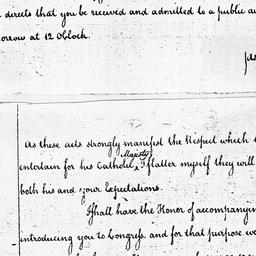 directs that you be received and admitted to a public au
orrow at 12 OClock.
As these acts strongly manifest the Respect which t
entertain for his Catholic Majesty I flatter myself they will
both his and your Expectations.
I shall have the Honor of accompanying
introducing you to Congress, and for that purpose w